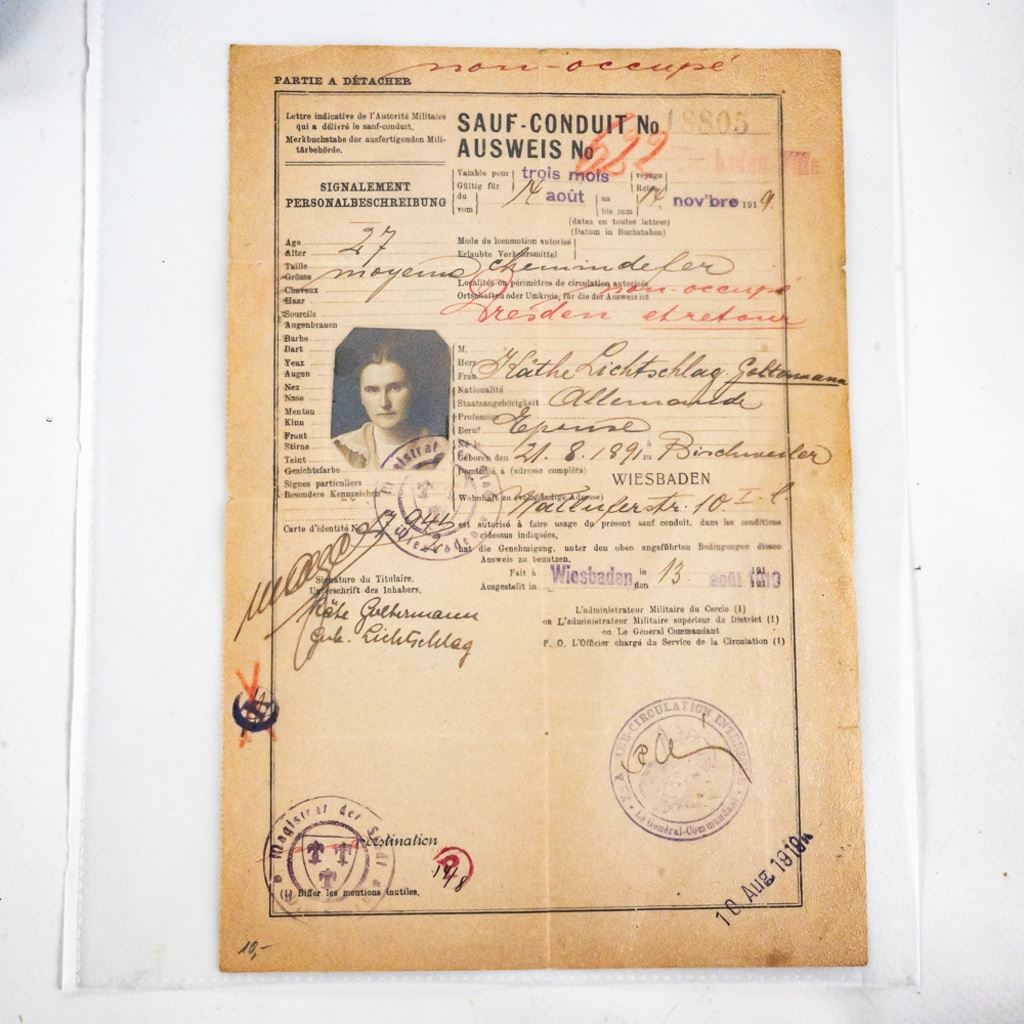 non-occupé
PARTIE A DÉTACHER
Lettre indicative de l'Autorité Militaire
qui a délivré le sauf-conduit.
Merkbuchstabe der ausfertigenden Mili-
tärbehörde.
SAUF-CONDUIT No 18805
AUSWEIS No 622
SIGNALEMENT
PERSONALBESCHREIBUNG
Valable pour trois mois voyage
Gültig für Reise
du 14 août au 14 nov'bre 1919
vom bis zum
(dates en toutes lettres)
(Datum in Buchstaben)
Age 27
Alter
Taille moyenne
Grösse
Cheveux
Haar
Sourcils
Augenbrauen
Barbe
Bart
Yeux
Augen
Nez
Nase
Menton
Kinn
Front
Stirne
Teint
Gesichtsfarbe
Signes particuliers
Besondere Kennzeichen
Carte d'identité N
Mode de locomotion autorisé
Erlaubte Verkehrsmittel
chemin de fer
Localités ou périmètres de circulation autorisés
non-occupé
Ortschaften oder Umkreis, für die der Ausweis ist
Dresden et retour
M.
Herr Käthe Lichtschlag-Goltermann
Frau
Nationalité
Staatsangehörigkeit Allemande
Profession
Beruf Epouse
Né le
Geboren den 21. 8. 1891 à zu Bischweiler
Domicilié à (adresse complète)
WIESBADEN
Wohnhaft zu (vollständige Adresse)
10 I. l.
est autorisé à faire usage du présent sauf conduit, dans les conditions
cidessus indiquées,
hat die Genehmigung, unter den oben angeführten Bedingungen diesen
Ausweis zu benutzen.
Fait à Wiesbaden le 13 août 1919
Ausgestellt in den
Signature du Titulaire.
Unterschrift des Inhabers.
Käte Goltermann
geb. Lichtschlag
L'administrateur Militaire du Cercle (1)
ou L'administrateur Militaire supérieur du District (1)
ou Le Général Commandant
P. O. L'Officier chargé du Service de la Circulation (1)
Magistrat
Wiesbaden
CIRCULATION
Le Général-Commandant
Magistrat der Stadt
Destination
(1) Biffer les mentions inutiles.
10 Aug 1919
10,-